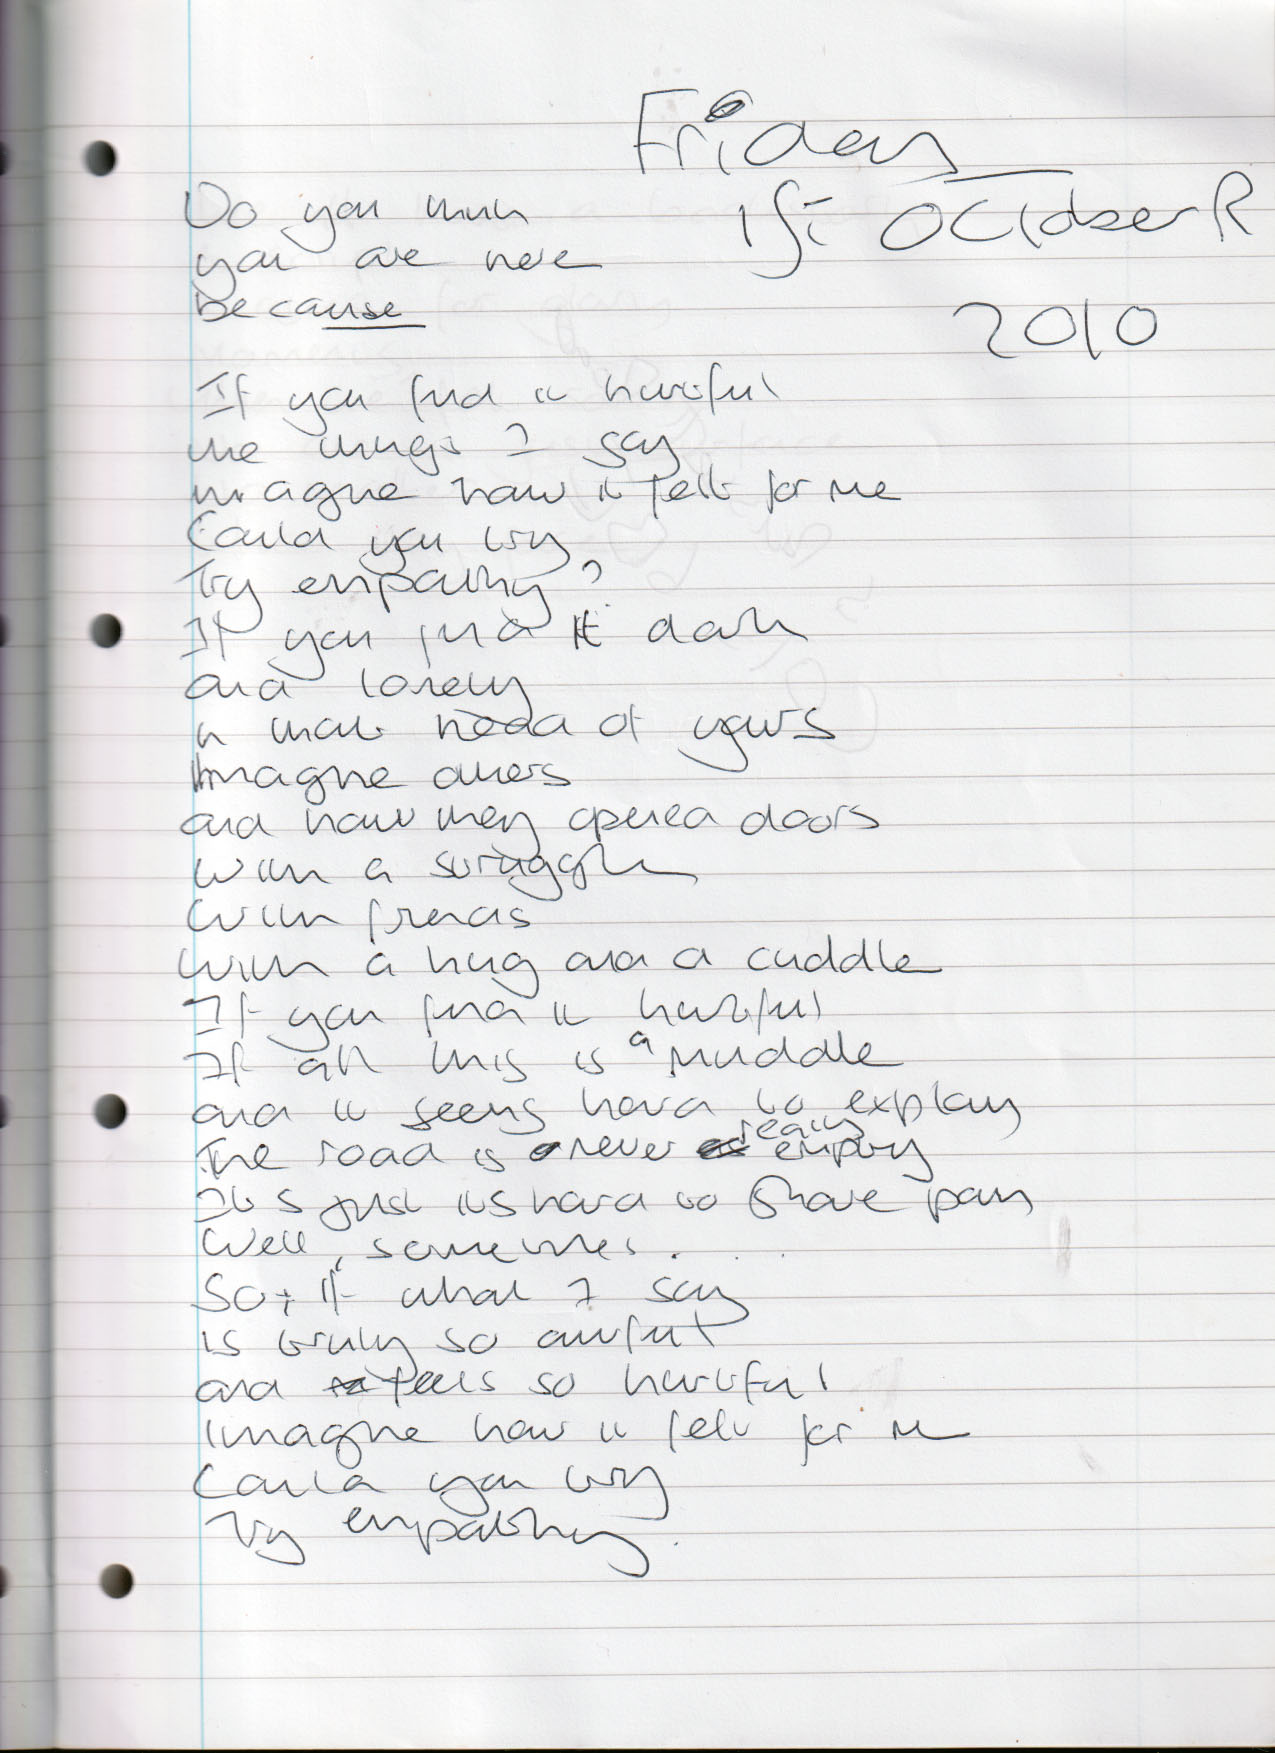 Friday
1st OCtobseR
2010
Do you think
you are here
because
If you find it hurtful
the things I say
imagine how it felt for me
Could you try
Try empathy?
If you find it dark
and lonely
in that head of yours
Imagine others
and how they opened doors
with a struggle
with friends
with a hug and a cuddle
If you find it hurtful
If all this is a muddle
and it seems hard to explain
The road is never really empty
It's just its hard to share pain
Well, sometimes.
So, if what I say
is truly so awful
and feels so hurtful
Imagine how it felt for me
Could you try
Try empathy.